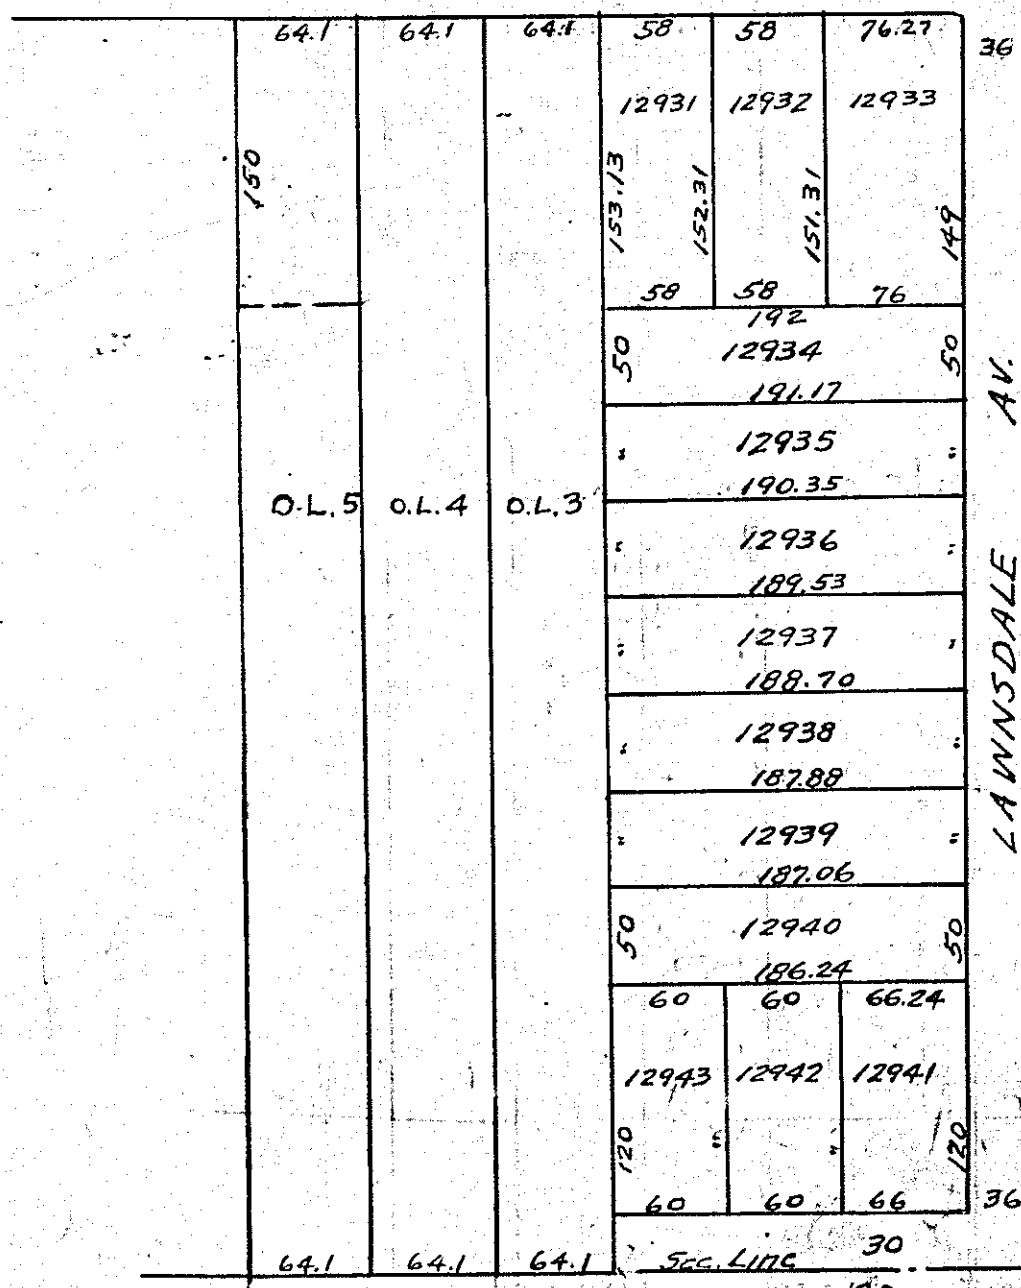 64.1 64.1 64.1 58 58 76.27 36
12931 12932 12933
150 153.13 152.31 151.31 149
58 58 76
192
50 12934 50
191.17
" 12935 "
190.35
O.L.5 O.L.4 O.L.3
" 12936 "
189.53
" 12937 "
188.70
" 12938 "
187.88
" 12939 "
187.06
50 12940 50
186.24
LAWNSDALE AV.
60 60 66.24
12943 12942 12941
120 " " 120
60 60 66 36
64.1 64.1 64.1 Sec. Line 30